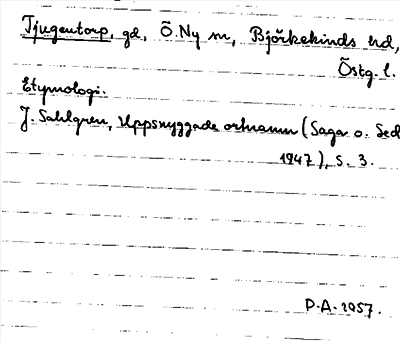 Tjugentorp, gd, Ö. Ny sn, Björkekinds hd,
Östg. l.
Etymologi.
J. Sahlgren, Uppsnyggade ortnamn (Saga o. Sed
1947), s. 3.
P.A. 1957.